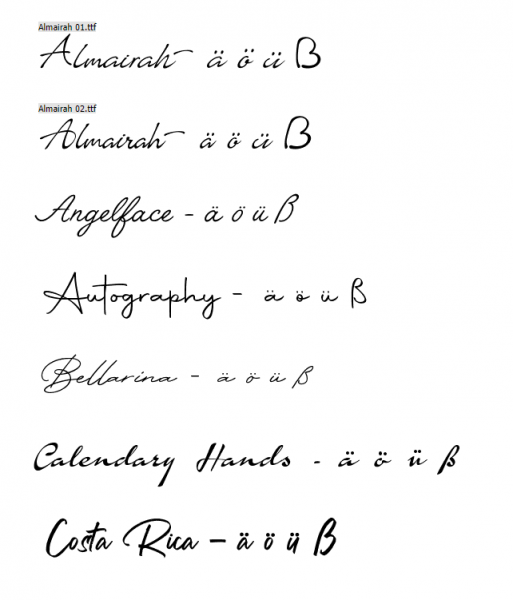 Almairah 01.ttf
Almairah - ä ö ü ß
Almairah 02.ttf
Almairah - ä ö ü ß
Angelface - ä ö ü ß
Autography - ä ö ü ß
Bellarina - ä ö ü ß
Calendary Hands - ä ö ü ß
Costa Rica – ä ö ü ß